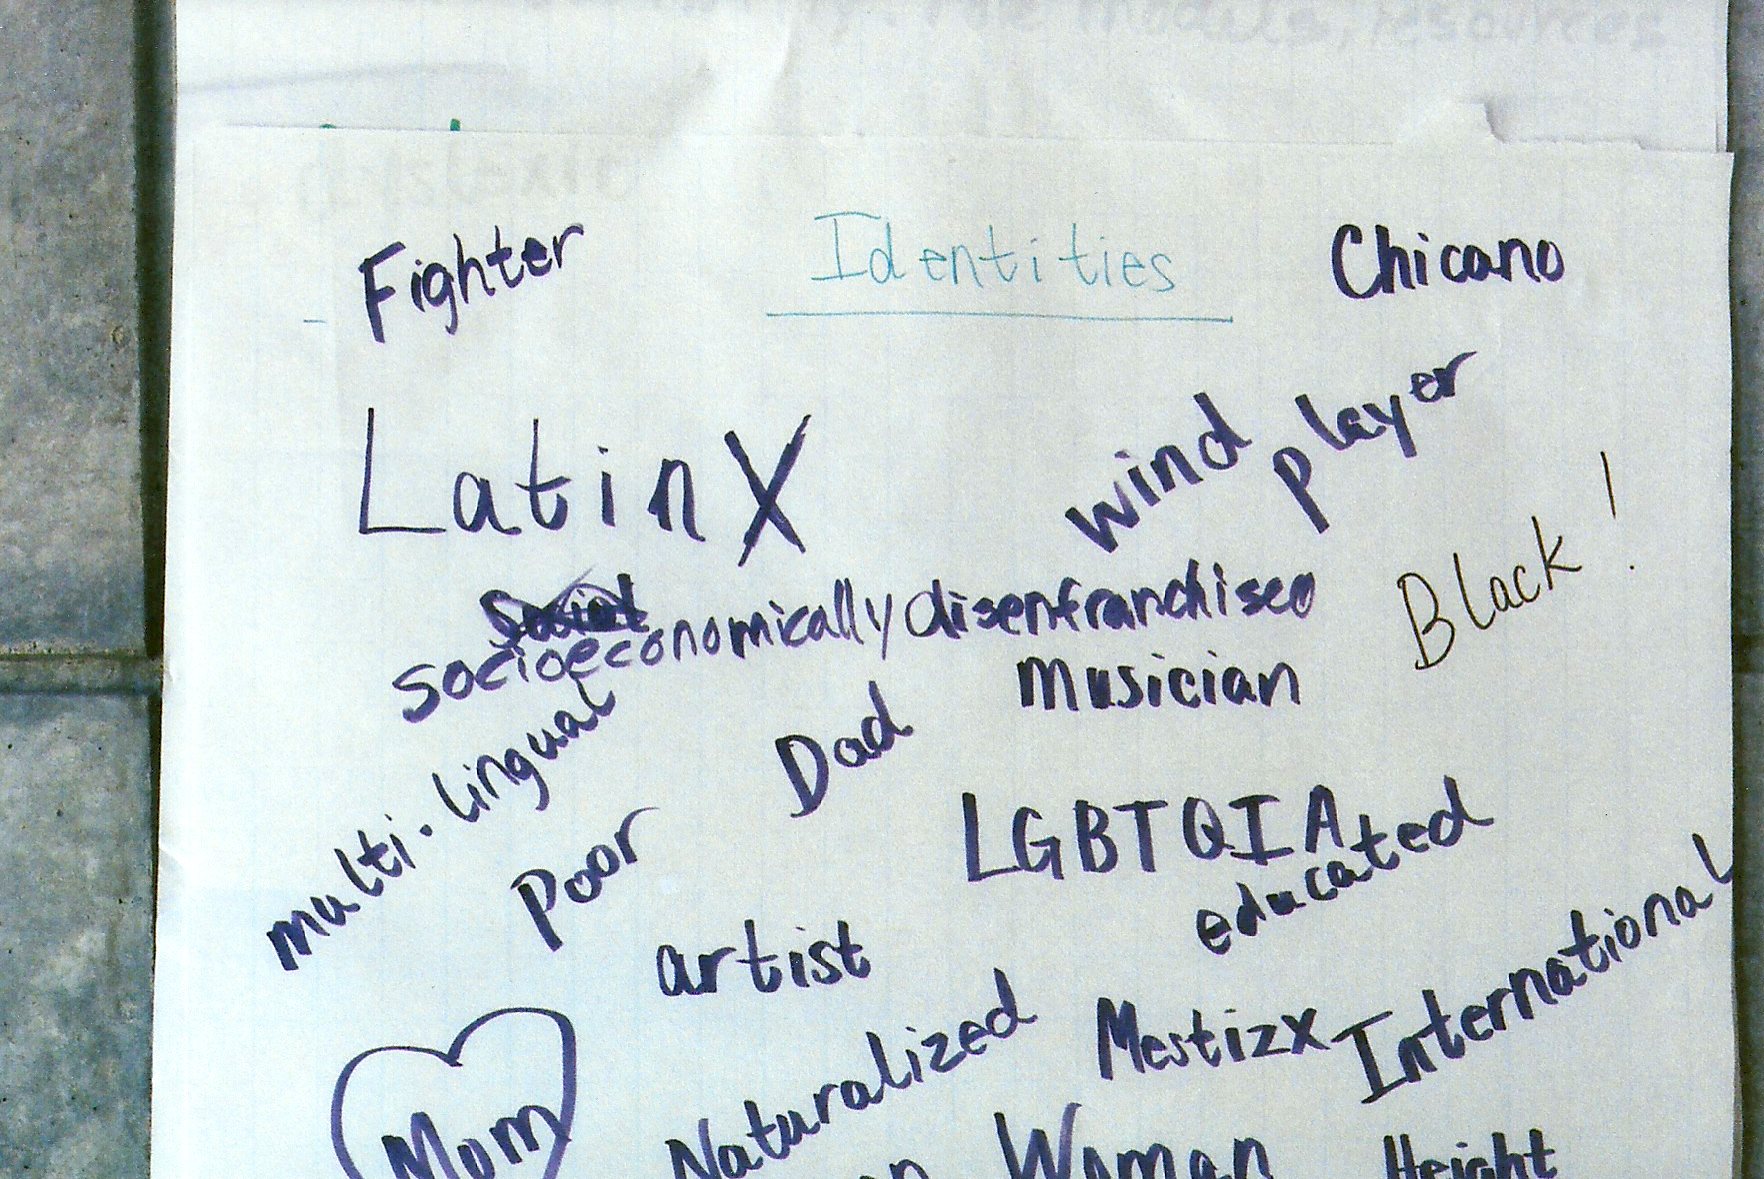 role models, resources
Fighter
Identities
Chicano
LatinX
wind player
Black!
socioeconomically disenfranchised
musician
multi-lingual
Dad
Poor
LGBTQIA
educated
artist
International
Mestizx
Naturalized
Mom
Woman
Height